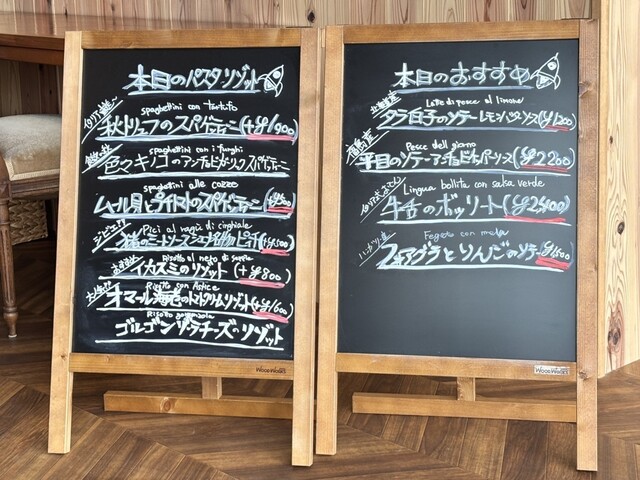 本日のパスタ・リゾット
spaghettini con tartufo
秋トリュフのスパゲッティーニ(+¥1,900)
spaghettini con i funghi
色々キノコのアンチョビガーリックスパゲッティーニ
spaghettini alle cozze
ムール貝とプチトマトのスパゲッティーニ
Pici al ragù di cinghiale
猪のミートソース シエナ名物ピィチ
Risotto al nero di seppia
イカスミのリゾット(+¥800)
Risotto con Astice
オマール海老のトマトクリームリゾット(+¥1,600)
ゴルゴンゾーラチーズのリゾット
WOOD WORKS
本日のおすすめ
北海道産
Latte di pesce al limone
タラ白子のソテー レモンバターソース(¥1,200)
Pesce del giorno
平目のソテー アンチョビケイパーソース(¥2,200)
Lingua bollita con salsa verde
牛舌のボッリート(¥2,400)
ハンガリー産
Fegato con mela
フォアグラとりんごのソテー
WOOD WORKS